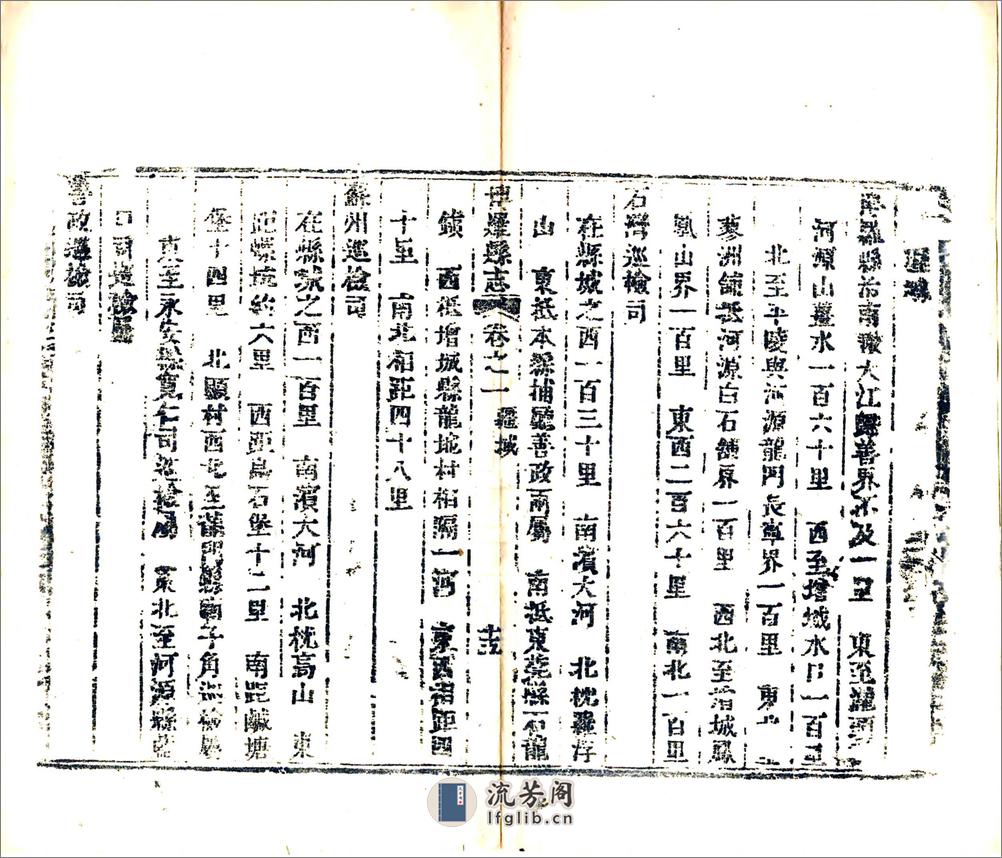 疆域
博羅縣治南瀕大江歸善界不及一里　東至
河源山　水一百六十里　西至增城水口一百里
北至平陵與河源龍門長寧界一百里　東北
蓼洲　抵河源白石舖界一百里　西北至增城鳳
凰山界一百里　東西二百六十里　南北一百里
石灣巡檢司
在縣城之西一百三十里　南濱大河　北枕羅浮
山　東抵本縣捕廳善政兩屬　南抵東莞縣石龍
博羅縣志　卷之一　疆域　十五
鎮　西抵增城縣龍地村相隔一河　東西相距四
十里　南北相距四十八里
蘇州巡檢司
在縣城之西一百里　南濱大河　北枕高山　東
距縣境約六里　西距烏石堡十二里　南距鹹塘
堡十四里　北顯村西北至龍門縣　子角
東至永安縣寬仁司巡檢屬　東北至河源縣藍
口司巡檢屬
善政巡檢司
流芳阁
lfglib.cn